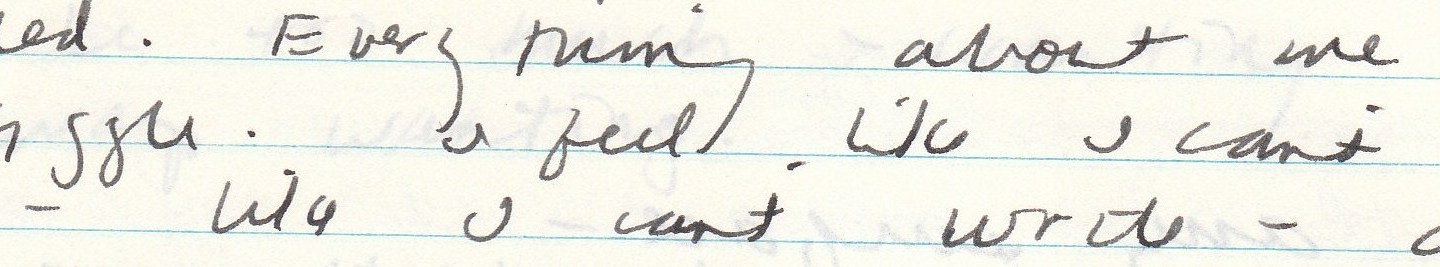 ed. Everything about me
uggle. I feel like I can't
- like I can't write -